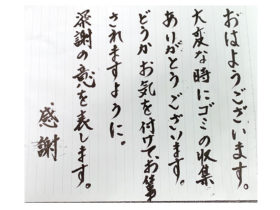 おはようございます。
大変な時にゴミの収集
ありがとうございます。
どうかお気を付けてお
されますように。
深謝の意を表します。
感謝